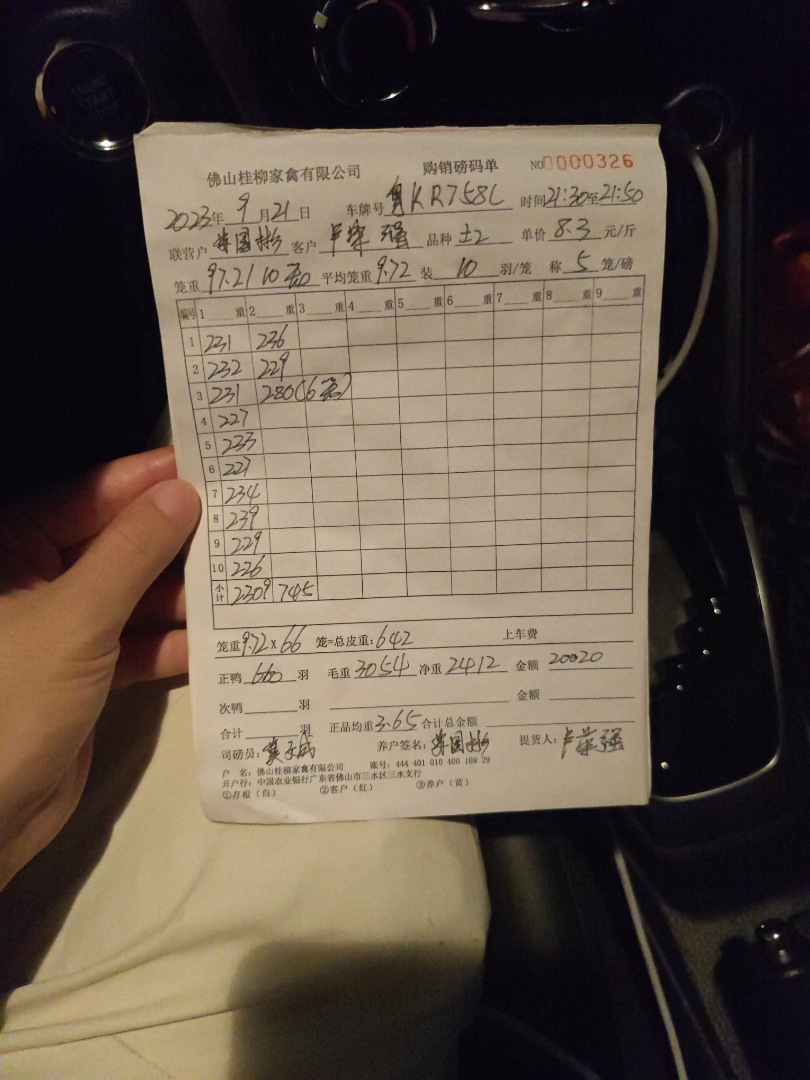 ENGINE
START
STOP
佛山桂柳家禽有限公司 购销磅码单 NO0000326
2023年9月21日 车牌号 粤KR758L 时间21:30至21:50
联营户 国彬 客户 卢荣强 品种 土2 单价 8.3 元/斤
笼重 97.2/10 平均笼重9.72 装 10 羽/笼 称 5 笼/磅
编号 1 重 2 重 3 重 4 重 5 重 6 重 7 重 8 重 9 重
1 231 236
2 232 229
3 231 280(6
4 227
5 233
6 227
7 234
8 239
9 229
10 226
小计 2309 745
笼重9.72×66 笼=总皮重:642 上车费
正鸭 660 羽 毛重3054 净重2412 金额 20020
次鸭 羽 金额
合计 羽 正品均重3.65 合计总金额
司磅员: 养户签名: 国彬 提货人: 卢荣强
户 名: 佛山桂柳家禽有限公司 账号: 444 401 010 400 169 29
开户行: 中国农业银行广东省佛山市三水区三水支行
①存根(白) ②客户(红) ③养户(黄)